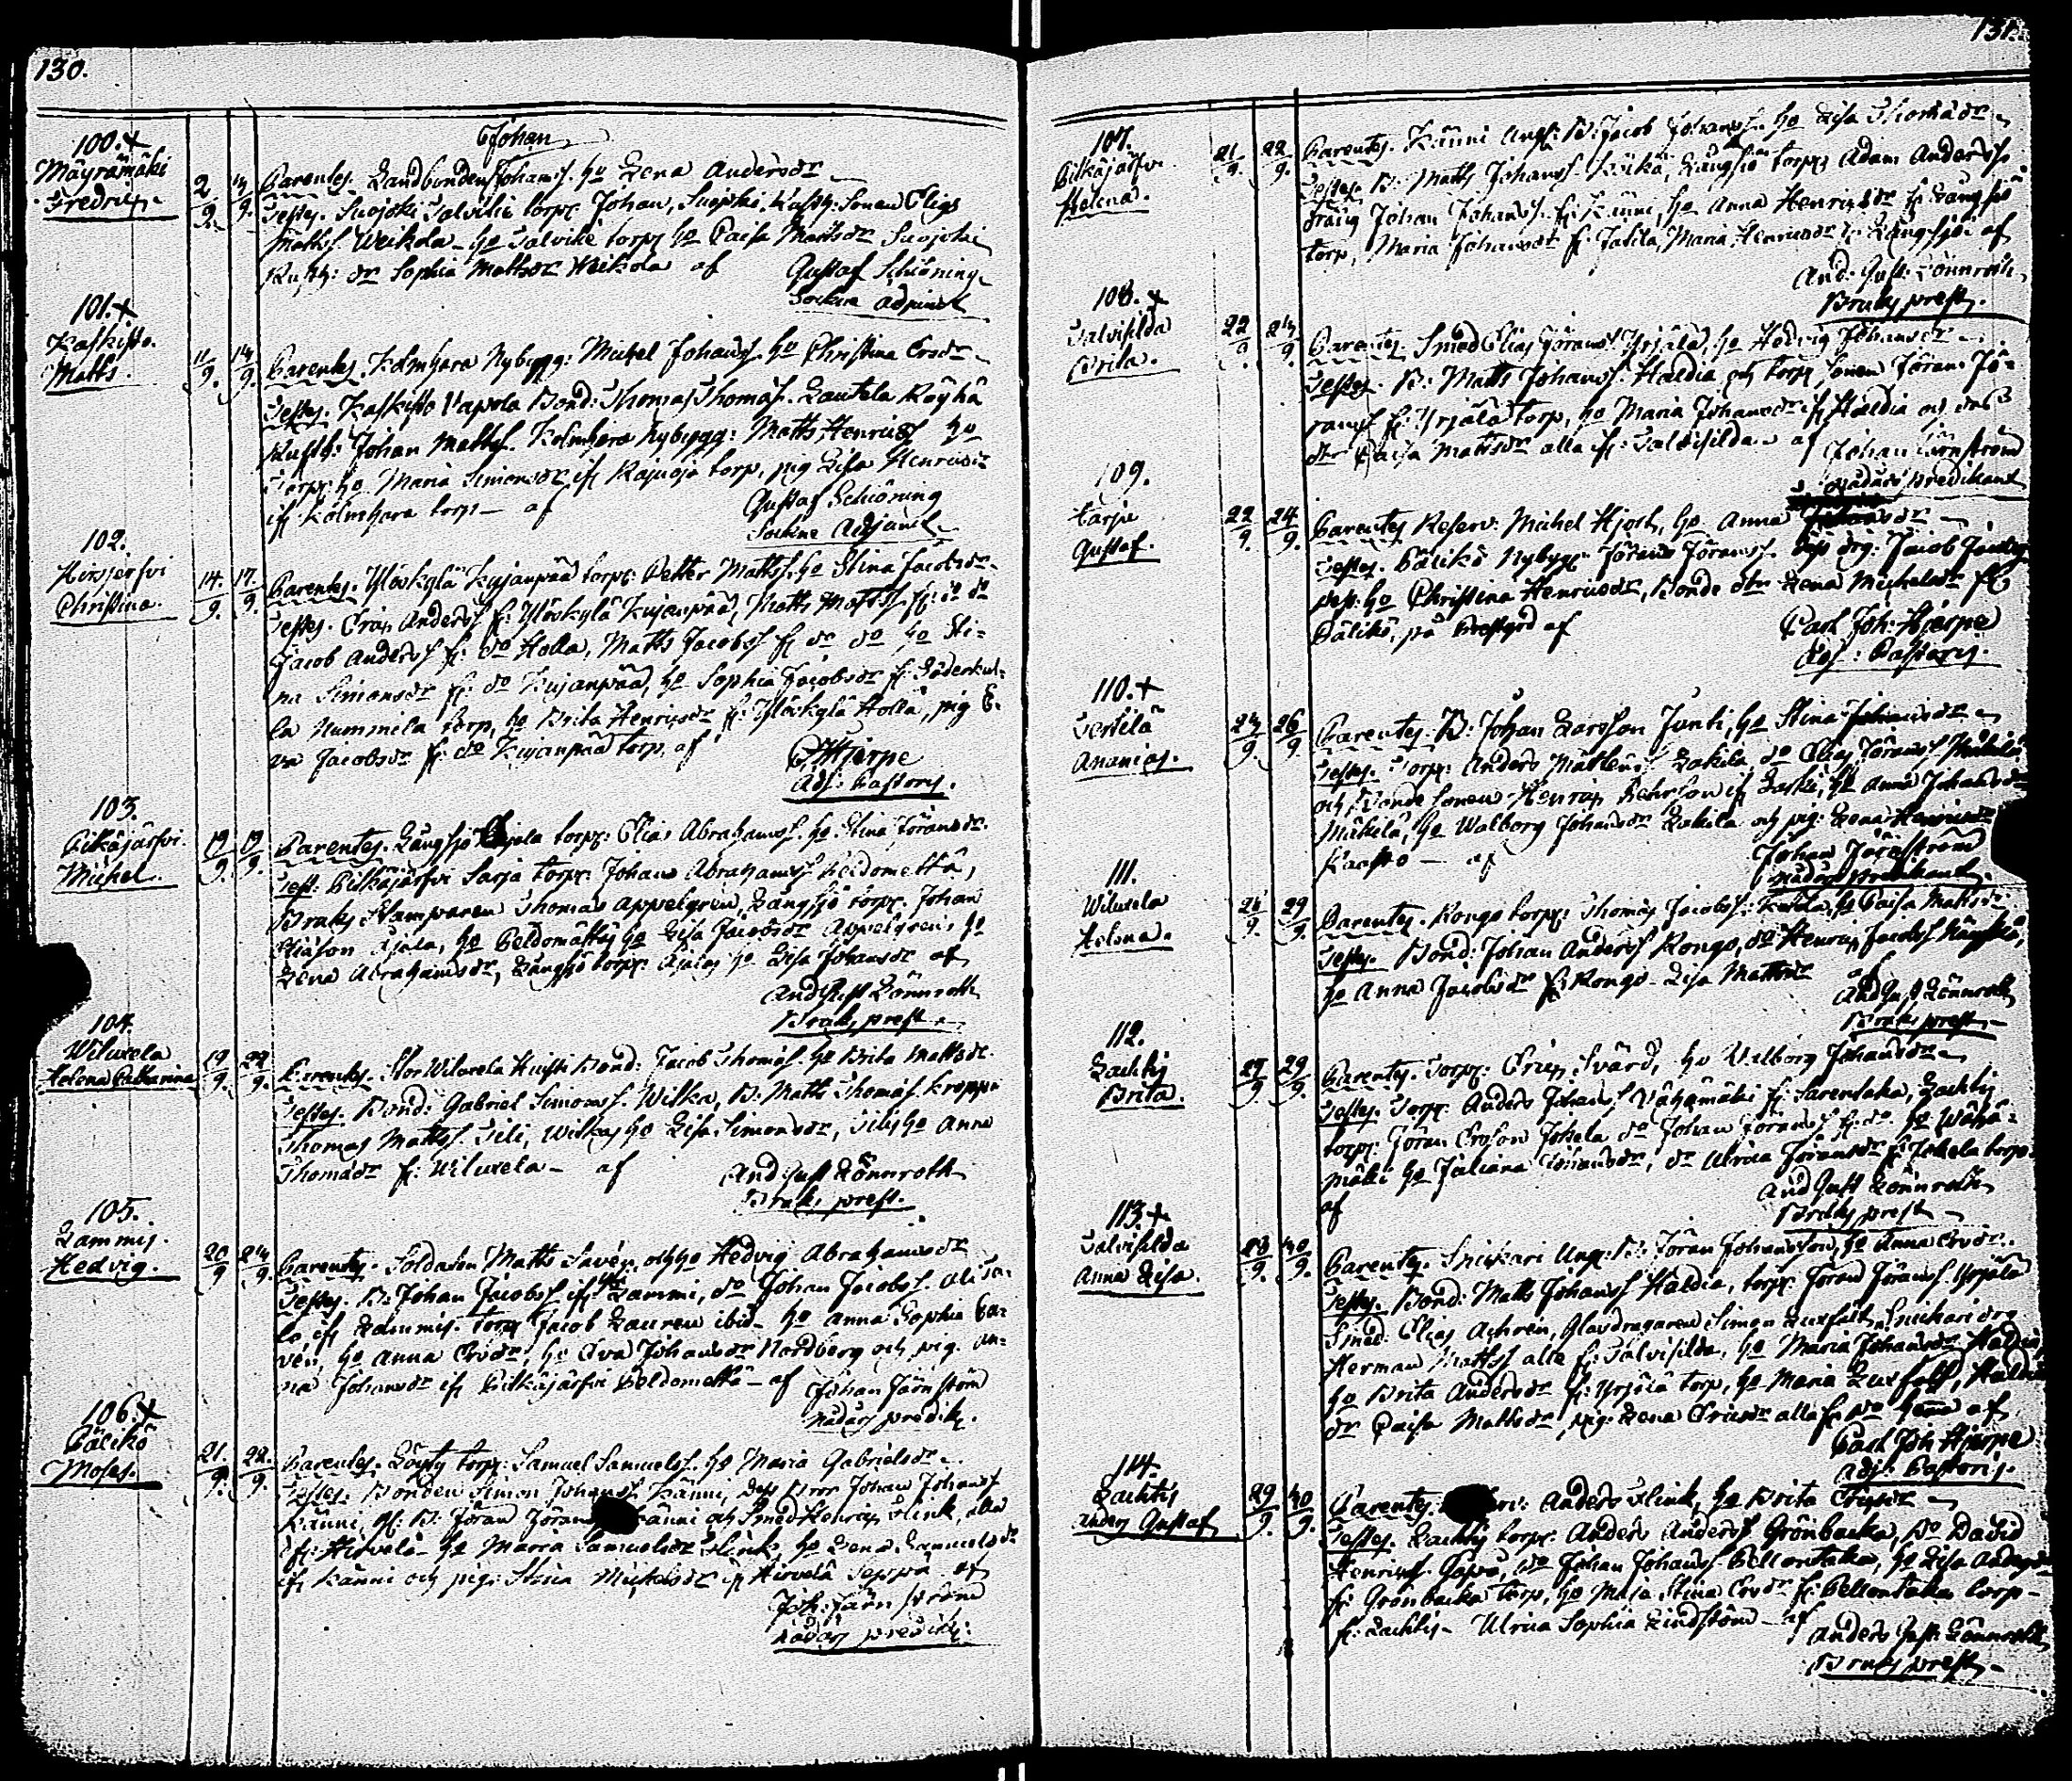 130.
100. +
Mäyrämäki
Fredric.
2/9. 14/9.
Johan
Parentes. Landbonden Johanss. ho Lena Andersdr
Testes. Suojoki Salvikie torp: Johan, Suojoki, Rusth: Sonen Elias
Mattss. Weikola ho Salvike torp ho Caisa Mattsdr Suojoki
Rusth: dr Sophia Mattsdr Weikola af Gustaf Schiöning
Sockne Adjunct
101. +
Kaskisto.
Matts.
11/9. 14/9.
Parentes. Kolmhara Nybygg: Michel Johanss. ho Christina Ersdr
Testes. Kaskisto Vapola Bond: Thomas Thomass. Lautela Röyhä
Rusth: Johan Mattss. Kolmhara Nybygg: Matts Henricss ho
Torp: ho Maria Simonsdr ifr Rajnoja torp, pig Lisa Henricsdr
ifr Kolmhara torp af Gustaf Schiöning
Sockne Adjunct
102.
Hirsjerfvi
Christina.
14./9. 17./9.
Parentes. Ylöskylä Kujanpää torp: Petter Mattss. ho Stina Jacobsdr
Testes. Eric Anderss fr: Ylöskylä Kujanpää, Matts Mattss fr: do do
Jacob Anderss fr: do Holla, Matts Jacobss fr do do ho Sti-
na Simonsdr fr: do Kujanpää, ho Sophia Jacobsdr fr: Söderkul-
la Nummila torp, ho Brita Henricsdr fr: Ylöskylä Holla, pig E-
va Jacobsdr fr: do Kujanpää torp, af
C. Hjerpe
Adj: Pastoris.
103.
Pitkäjärfvi.
Michel.
19/9. 19/9.
Parentes. Långsjö Ajala torp: Elias Abrahamss. ho Stina Göransdr.
Test: Pitkäjärfvi Sarja torp: Johan Abrahamss Peldomettä,
Bruks Stamparen Thomas Appelgrein, Långsjö torp: Johan
Eliasson Ajala, ho Peldomättäs ho Lisa Jacobsdr Appelgrein, ho
Lena Abrahamsdr, Långsjö torp: Ajalas ho Lisa Johansdr af
And Gust Lönnroth
Bruks prest.
104.
Wiluxela
Helena Catharina
19/9. 22/9.
Parentes. Stor Wiluxela Huisti Bond: Jacob Thomass. ho Brita Mattsdr.
Testes. Bond: Gabriel Simonss. Wilka, B: Matts Thomass. Kroppa
Thomas Mattss. Sili, Wilkas ho Lisa Simonsdr, Silis ho Anna
Thomasdr fr: Wiluxela af And: Gust Lönnroth
Bruks prest.
105.
Lammis.
Hedvig.
20/9 24/9.
Parentes. Soldaten Matts Savén och ho Hedvig Abrahamsdr
Testes. B: Johan Jacobss ifr Lammi, do Johan Jacobss. Alisa-
lo ifr Lammis. torp Jacob Lauren ibid. ho Anna Sophia Sa-
vén, ho Anna Ersdr, ho Eva Johansdr Nordberg och pig. An-
na Johansdr ifr Pitkäjärfvi Peldomettä af Johan Järnström
Nådårs predik.
106. +
Pälikö
Moses.
21./9. 22./9.
Parentes. Löyty torp: Samuel Samuelss. ho Maria Gabrielsdr
Testes. Bonden Simon Johanss Känni, dess Bror Johan Johanss
Känni, B: Jöran Jörans Känni och Smed Henric Flink, alla
ifr Hirvelä ho Maria Samuelsdr Flink, ho Lena Samuelsdr
ifr Känni och pig: Stina Michelsdr ifr Hirvelä Seppä af
Joh: Järnström
Nådårs predik:
131.
107.
Pitkäjärfvi
Helena.
21/9. 22/9.
Parentes. Känni Ung: B: Jacob Johanss. ho Lisa Thomasdr
Testes. B: Matts Johanss. Långsjö torp: Adam Anderss.
dräng Johan Johanss. fr: Känni, ho Anna Henricsdr fr: Långsjö
torp, Maria Johansdr fr: Jakila, Maria Henricsdr fr: Långsjö af
And: Gust: Lönnroth
Bruks prest.
108. +
Salvisilda
Brita.
22/9 24/9.
Parentes. Smed Elias Jöranss Yrjälä, ho Hedvig Johansdr
Testes. B: Matts Johanss. Haldia och torp sonen Jöran Jö-
ranss fr: Yrjälä torp, ho Maria Johansdr ifr Haldia och dess
dr Caisa Mattsdr alla ifr: Salvisilda af Johan Järnström
Nådårs predikant
109.
Harju
Gustaf.
22/9. 24/9.
Parentes Reserv: Michel Hjort, ho Anna
Testes. Pälikö Nybygg: Jöran Jöranss. drg: Jacob
ho Christina Henricsdr, Bonde dtr Lena Michelsdr fr
Pälikö, på Prestgrd af Carl Joh: Hjerpe
Adj: Pastoris.
110. +
Tertilä
Ananias.
24/9 26/9
Parentes. B: Johan Larsson Junti, ho Stina Johansdr
Testes. Torp: Anders Lakila, do Elias Jöranss Mäkilä
och Bonde sonen Henric ifr Laski, ho Anna Johansdr
Mäkilä, ho Walborg Johansdr Lakila och pig: Lena Henricsdr
Kaasto af Johan Järnström
Nådårs Predikant.
111.
Wiluxela
Helena.
26/9. 29/9
Parentes. Kongo torp: Thomas Jacobss: ho Caisa Mattsdr
Testes. Bond: Johan Anderss Kongo, do Henric Jacobss
ho Anna Jacobsdr fr Kongo Lisa Mattsdr af
And Gust Lönnroth
Bruks prest
112.
Lachtis
Brita.
27/9 29/9
Parentes. Torp: Eric Svärd, ho Walborg Johansdr
Testes. Torp: Anders Johanss Vähämäki fr: Sarentaka, Lachtis
torp: Jöran Ersson Jokela do Johan Jöranss fr: do. ho Wähä-
mäki ho Juliana Johansdr, dr Ulrica Jöransdr fr: Jokela torp.
af And Gust Lönnroth
Bruks prest
113. +
Salvisilda
Anna Lisa.
28/9. 30/9.
Parentes. Snickari Ung: B: Jöran Johansson, ho Anna Ersdr.
Testes. Bond: Matts Johanss Haldia, torp: Jöran Jöranss. Yrjälä
Smed: Elias Achrén, Glasdragaren Simon Luxfält, Snickari drg
Herman Mattss alla fr: Salvisilda, ho Maria Johansdr Haldia
ho Brita Andersdr fr: Yrjälä torp, ho Maria Luxfält, Haldia
dr Caisa Mattsdr, pig: Lena Ericsdr alla fr: do af
Carl Joh Hjerpe
Adj: Pastoris.
114.
Lachtis
Anders Gustaf
29/9. 30/9.
Parentes. Anders Flink, ho Brita Ericsdr
Testes. Lachtis torp: Anders Anderss Grönbacka, do David
Henricss. do Johan Johanss Pellontaka, ho Lisa Andersdr
fr: Grönbacka torp, ho Maja Stina Ersdr fr: Pellontaka torp
fr: Lachtis Ulrica Sophia Lindström af
Anders Gust: Lönnroth
Bruks prest